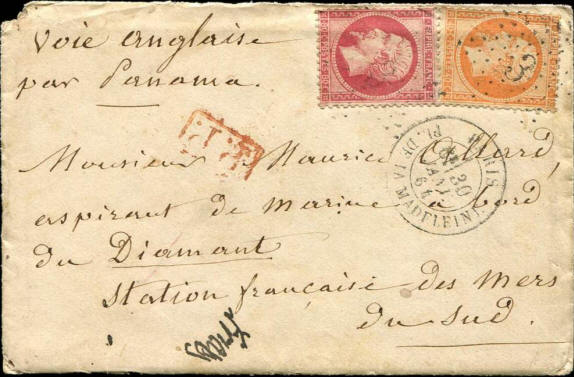 Voie anglaise
par Panama.
P.P.
PARIS
PL. DE LA MADELEINE
30
64
Monsieur Maurice
aspirant de Marine à bord
du Diamant
Station française des Mers
du Sud.